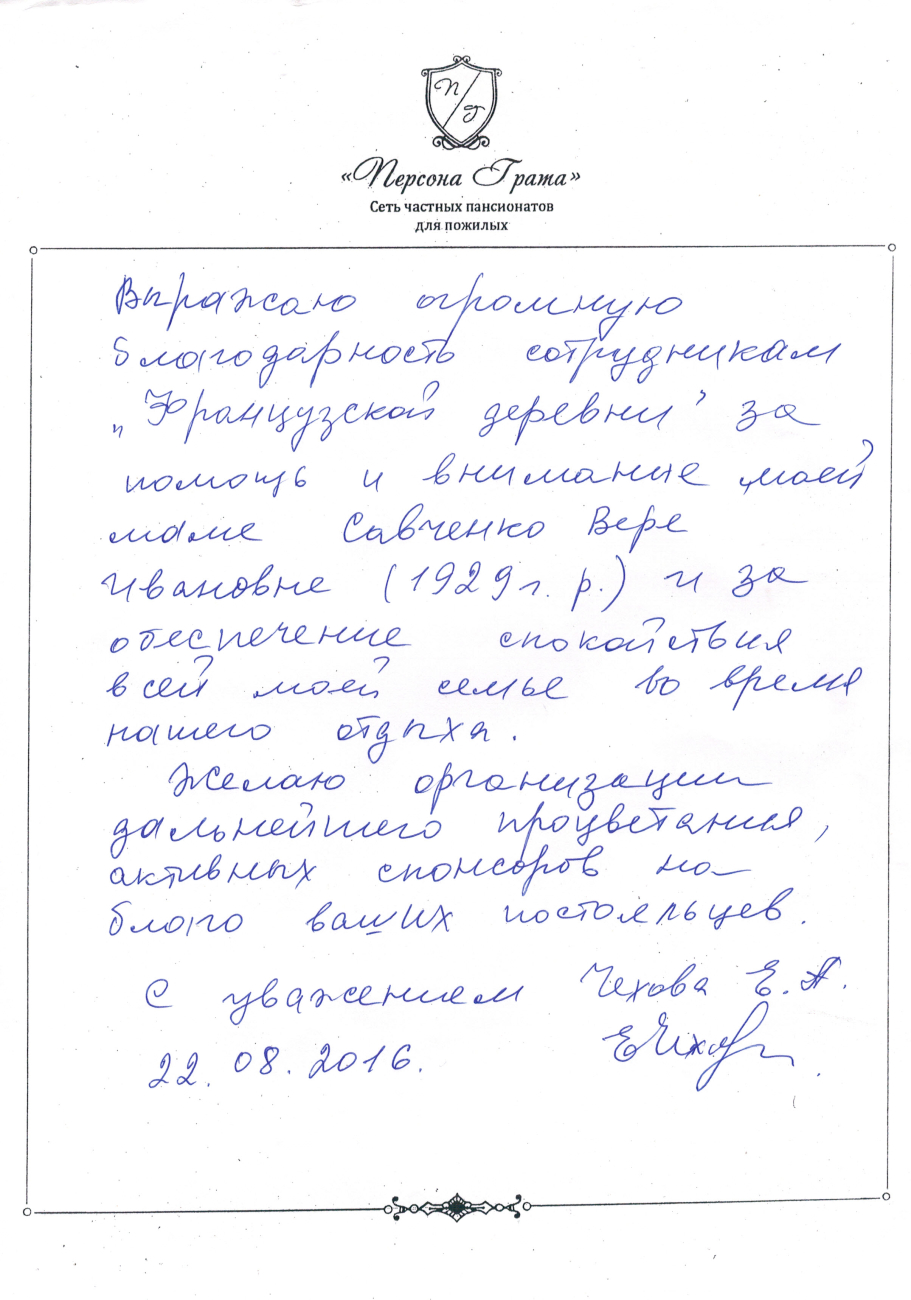 П Г
«Персона Грата»
Сеть частных пансионатов
для пожилых
Выражаю огромную
благодарность сотрудникам
„Французской деревни" за
помощь и внимание моей
маме Савченко Вере
Ивановне (1929г. р.) и за
обеспечение спокойствия
всей моей семье во время
нашего отдыха.
Желаю организации
дальнейшего процветания,
активных спонсоров на
благо ваших постояльцев.
С уважением Чехова Е. А.
22. 08. 2016.